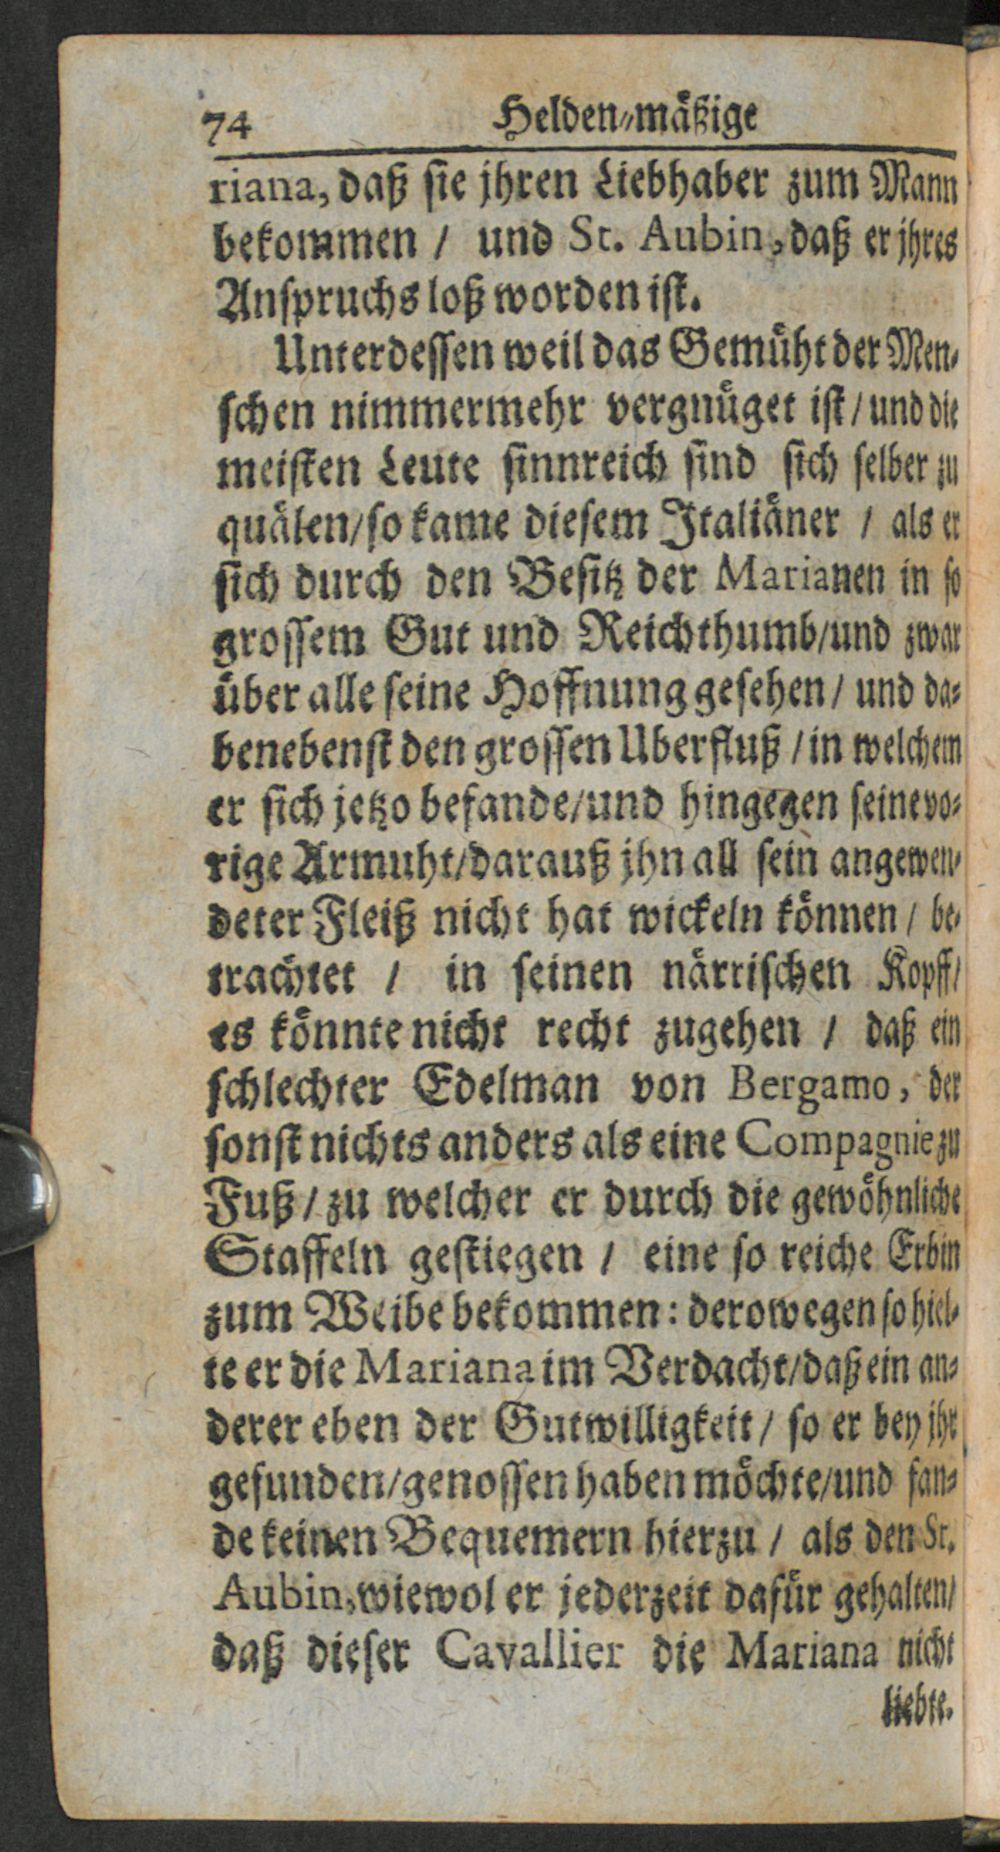 74 Helden-mäßige
riana, daß sie jhren Liebhaber zum Mann
bekommen / und St. Aubin, daß er jhres
Anspruchs loß worden ist.
Unterdessen weil das Gemüht der Men-
schen nimmermehr vergnüget ist / und die
meisten Leute sinnreich sind sich selber zu
quälen/ so kame diesem Italiäner / als er
sich durch den Besitz der Marianen in so
grossem Gut und Reichthumb/und zwar
über alle seine Hoffnung gesehen / und da-
benebenst den grossen Uberfluß / in welchem
er sich jetzo befande/und hingegen seine vo-
rige Armuht/darauß jhn all sein angewen-
deter Fleiß nicht hat wickeln können / be-
trachtet / in seinen närrischen Kopff/
es könnte nicht recht zugehen / daß ein
schlechter Edelman von Bergamo, der
sonst nichts anders als eine Compagnie zu
Fuß / zu welcher er durch die gewöhnliche
Staffeln gestiegen / eine so reiche Erbin
zum Weibe bekommen: derowegen so hiel-
te er die Mariana im Verdacht/daß ein an-
derer eben der Gutwilligkeit / so er bey jhr
gefunden/genossen haben möchte/und fan-
de keinen Bequemern hierzu / als den St.
Aubin, wiewol er jederzeit dafür gehalten/
daß dieser Cavallier die Mariana nicht
liebte.